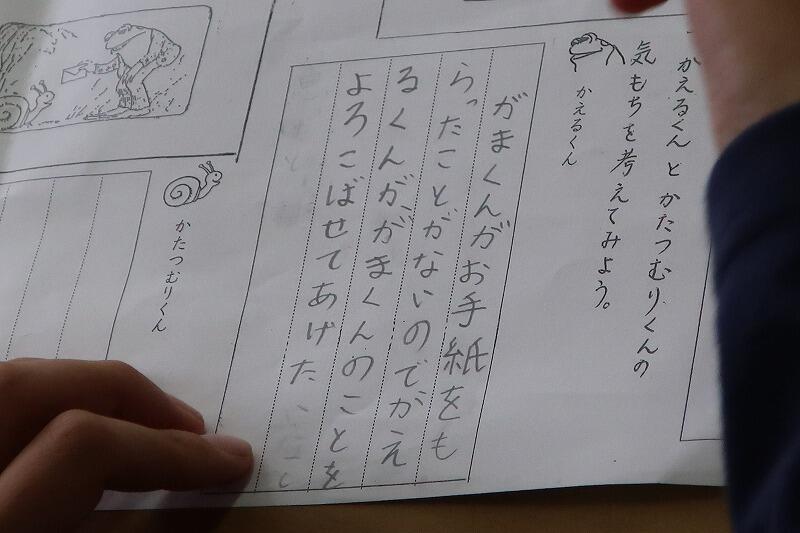 かえるくんとかたつむりくんの
気もちを考えてみよう。
かえるくん
がまくんがお手紙をも
らったことがないのでがえ
るくんが、がまくんのことを
よろこばせてあげた
かたつむりくん